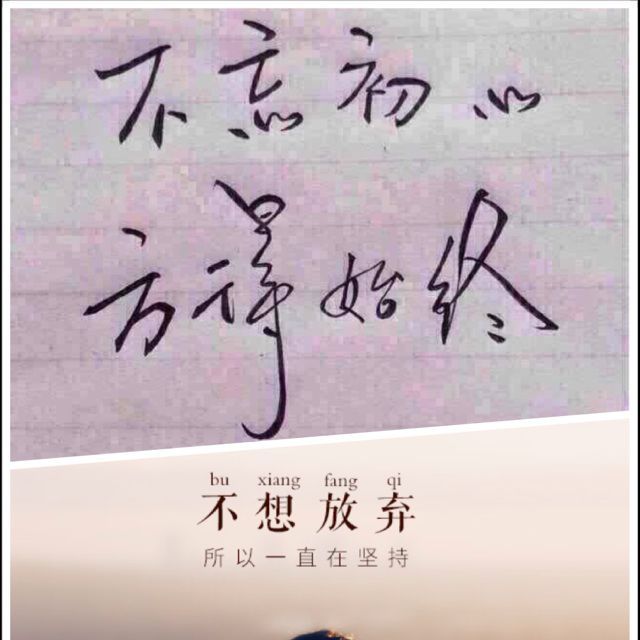 不忘初心
方得始终
bu xiang fang qi
不想放弃
所以一直在坚持